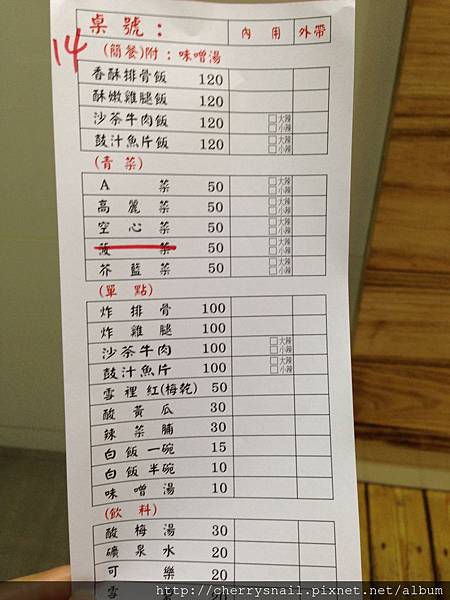 桌號： 內用 外帶
14
(簡餐)附：味噌湯
香酥排骨飯 120
酥嫩雞腿飯 120
沙茶牛肉飯 120 □大辣 □小辣
鼓汁魚片飯 120 □大辣 □小辣
(青菜)
A菜 50 □大辣 □小辣
高麗菜 50 □大辣 □小辣
空心菜 50 □大辣 □小辣
菠菜 50 □大辣 □小辣
芥藍菜 50 □大辣 □小辣
(單點)
炸排骨 100
炸雞腿 100
沙茶牛肉 100 □大辣 □小辣
鼓汁魚片 100 □大辣 □小辣
雪裡紅(梅乾) 50
酸黃瓜 30
辣菜脯 30
白飯一碗 15
白飯半碗 10
味噌湯 10
(飲料)
酸梅湯 30
礦泉水 20
可樂 20
雪 20
http://cherrysnail.pixnet.net/album